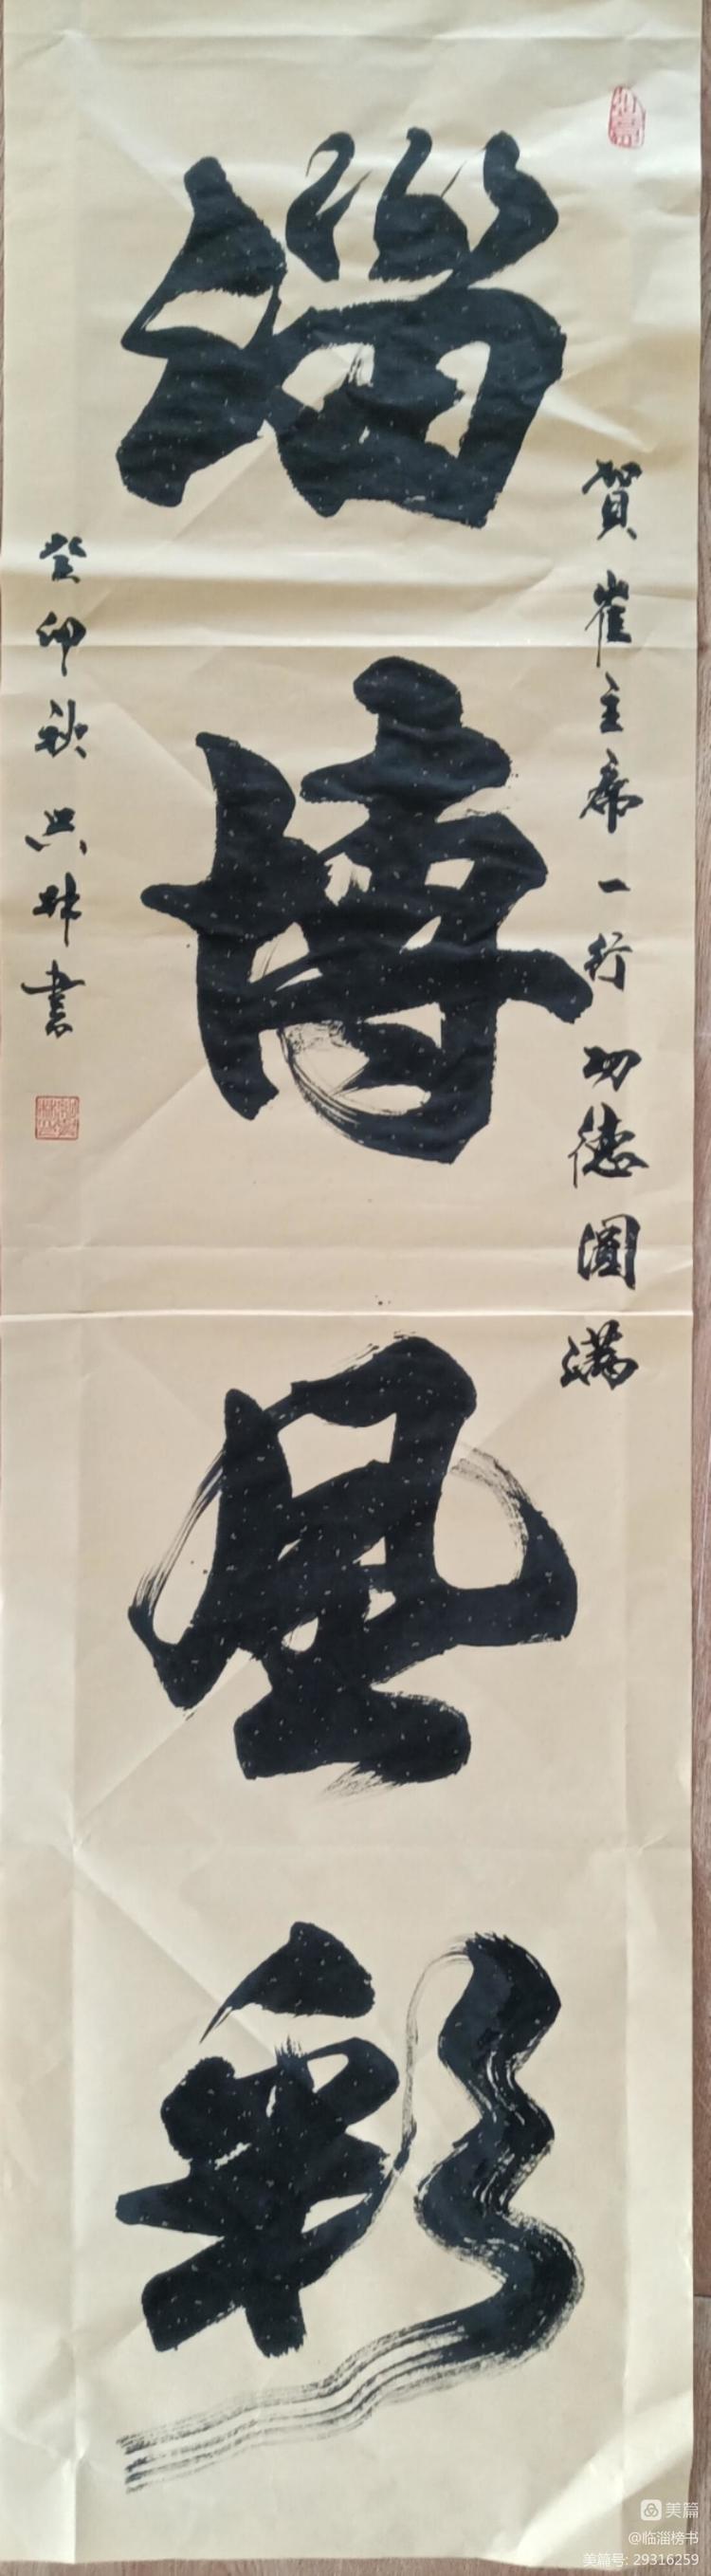 賀崔主席一行功德圓滿
淄博風彩
癸卯秋 書
美篇
@临淄榜书
美篇号: 29316259